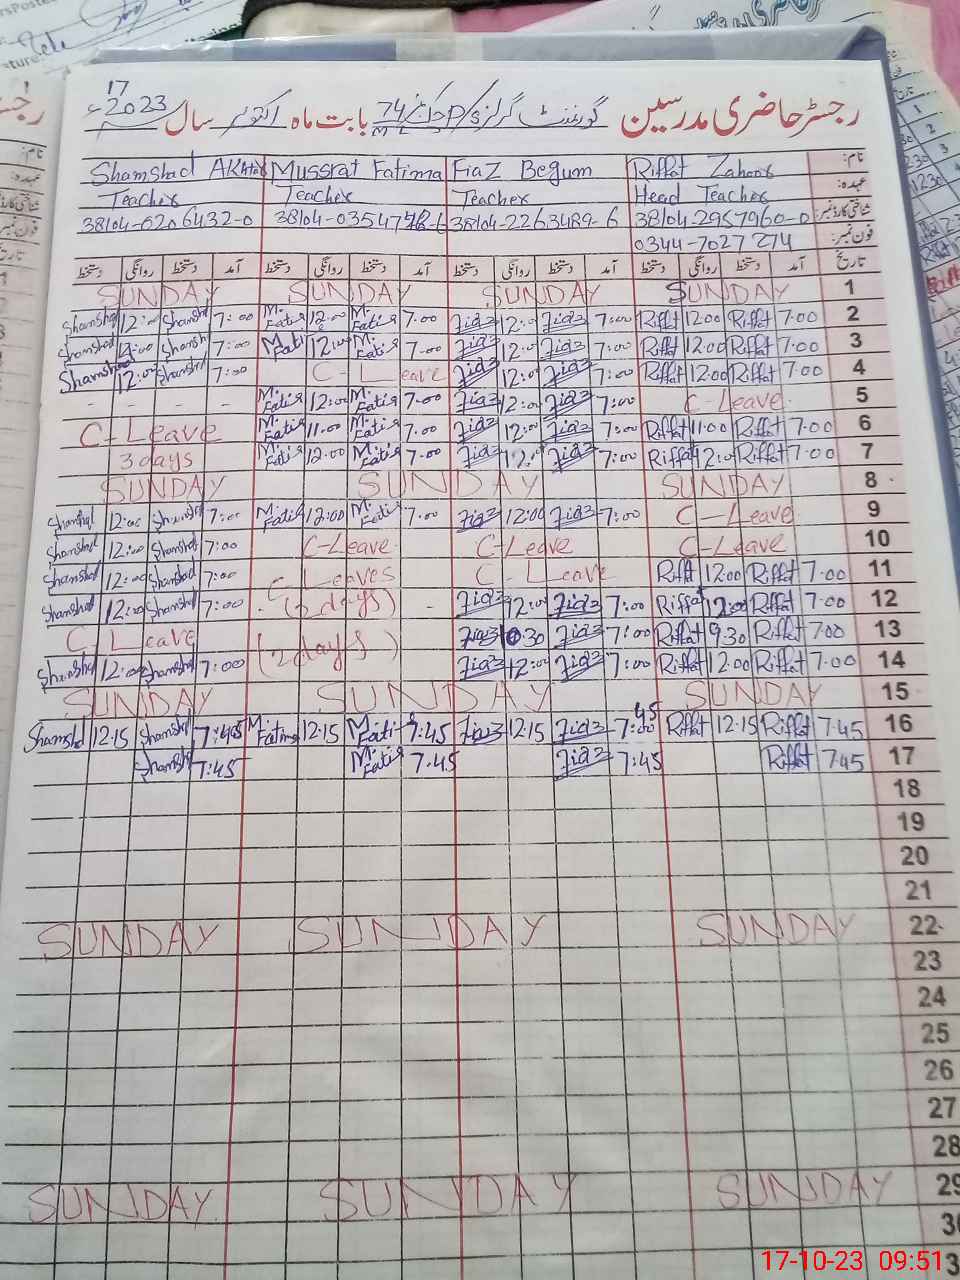 رجسٹر حاضری مدرسین گورنمنٹ گرلز P/S چک نمبر 74 ML بابت ماہ اکتوبر سال 2023
17
نام: Riffat Zahoor Fiaz Begum Mussrat Fatima Shamshad Akhtar
عہدہ: Head Teacher Teacher Teacher Teacher
شناختی کارڈ نمبر: 38104-2957960-0 38104-2263489-6 38104-0354778-6 38104-0206432-0
فون نمبر: 0344-7027274
تاریخ آمد دستخط روانگی دستخط آمد دستخط روانگی دستخط آمد دستخط روانگی دستخط آمد دستخط روانگی دستخط
SUNDAY SUNDAY SUNDAY SUNDAY 1
Shamshd 12:00 Shamshd 7:00 M. Fatis 12:00 M. Fatis 7.00 Fiaz 12:00 Fiaz 7:00 Riffat 12.00 Riffat 7.00 2
Shamshd 12:00 Shamshd 7:00 M. Fati 12:00 M. Fatis 7.00 Fiaz 12:00 Fiaz 7:00 Riffat 12.00 Riffat 7.00 3
Shamshd 12:00 Shamshd 7:00 C-Leave Fiaz 12:00 Fiaz 7:00 Riffat 12.00 Riffat 7.00 4
- - - - M. Fatis 12:00 M. Fatis 7.00 Fiaz 12:00 Fiaz 7:00 C-Leave 5
C-Leave M. Fatis 11.00 M. Fatis 7.00 Fiaz 12:00 Fiaz 7:00 Riffat 11:00 Riffat 7.00 6
3 days M. Fatis 12.00 M. Fatis 7.00 Fiaz 12:00 Fiaz 7:00 Riffat 12:00 Riffat 7.00 7
SUNDAY SUNDAY SUNDAY 8
Shamshd 12:00 Shamshd 7:00 M. Fatis 12:00 M. Fatis 7.00 Fiaz 12:00 Fiaz 7:00 C-Leave 9
Shamshd 12:00 Shamshd 7:00 C-Leave C-Leave C-Leave 10
Shamshad 12:00 Shamshad 7:00 C-Leaves C-Leave Riffat 12:00 Riffat 7.00 11
Shamshd 12:00 Shamshd 7:00 (2 days) - Fiaz 12:00 Fiaz 7:00 Riffat 12:00 Riffat 7.00 12
C-Leave (2 days) Fiaz 10:30 Fiaz 7:00 Riffat 9.30 Riffat 7.00 13
Shamshd 12:00 Shamshd 7:00 Fiaz 12:00 Fiaz 7:00 Riffat 12:00 Riffat 7.00 14
SUNDAY SUNDAY SUNDAY 15
Shamshd 12:15 Shamshd 7:45 M. Fatima 12:15 M. Fatis 7:45 Fiaz 12:15 Fiaz 7:45 Riffat 12:15 Riffat 7.45 16
Shamshd 7:45 M. Fatis 7.45 Fiaz 7:45 Riffat 7.45 17
18
19
20
21
SUNDAY SUNDAY SUNDAY 22
23
24
25
26
27
28
SUNDAY SUNDAY SUNDAY 29
30
17-10-23 09:51